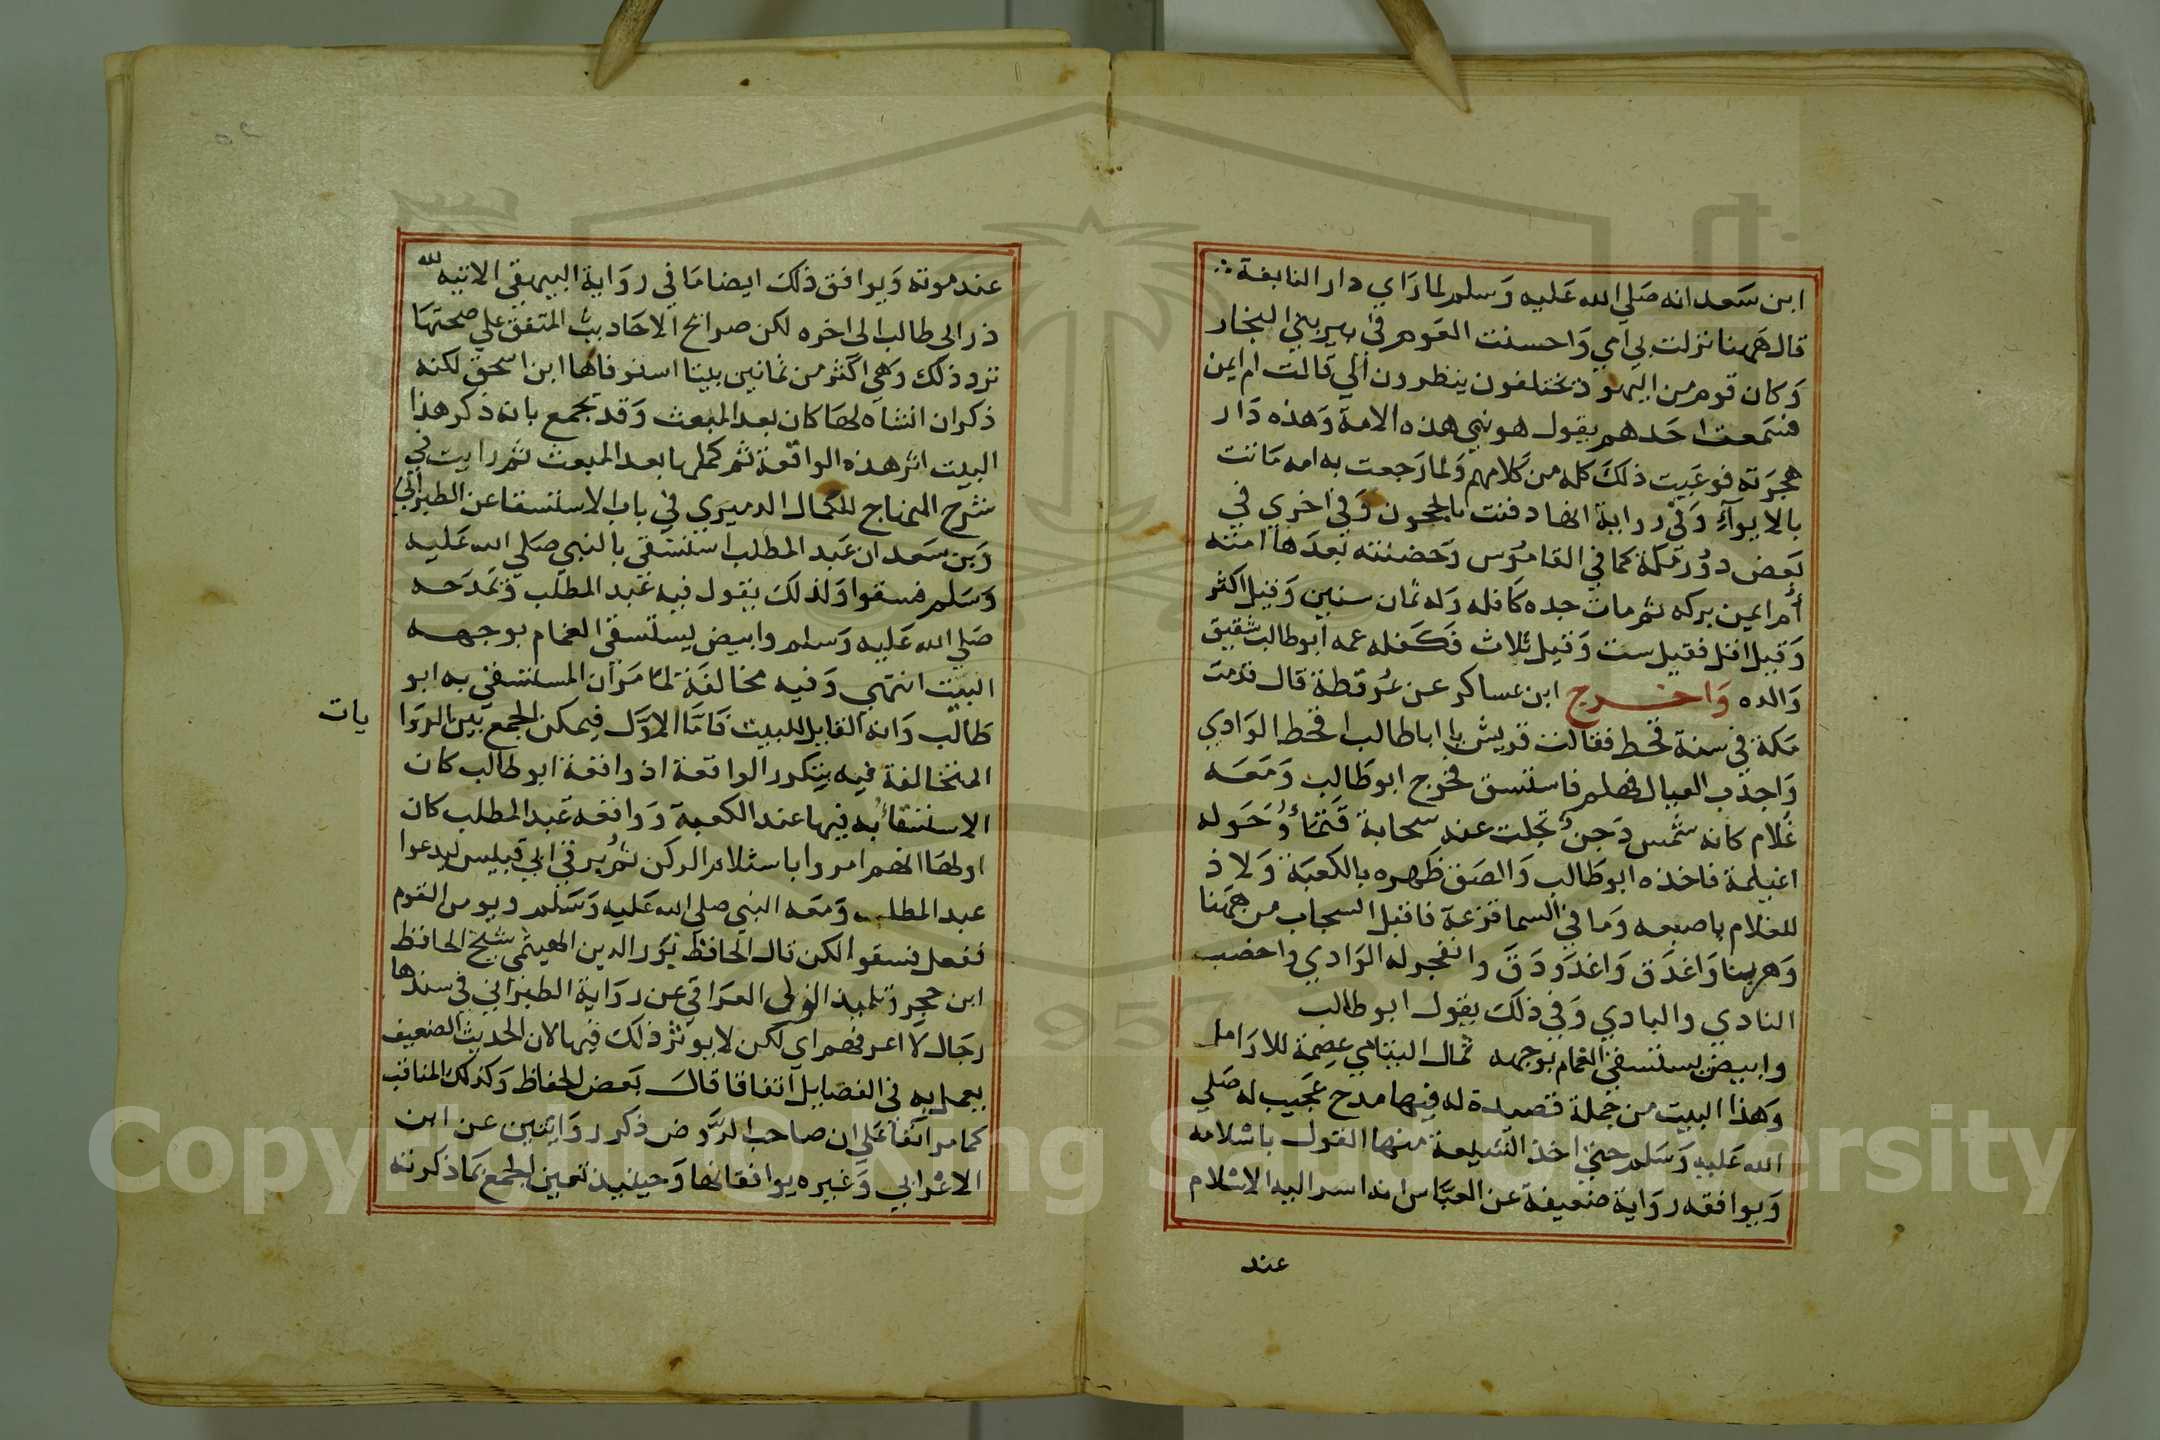 ابن سعد انه صلي الله عليه وسلم لما راي دار النابغة
قال ههنا نزلت بي امي واحسنت العوم في بير بني النجار
وكان قوم من اليهود يختلفون ينظرون الي قالت ام ايمن
فسمعت احدهم يقول هو نبي هذه الامة وهذه دار
هجرته فوعيت ذلك كله من كلامهم ولما رجعت به امه ماتت
بالابوآء وفي رواية انها دفنت بالحجون وفي اخري في
بعض دور مكة كما في القاموس وحضنته بعدها امته
أم ايمن بركه ثم مات جده كافله وله ثمان سنين وقيل اكثر
وقيل اقل فقيل ست وقيل ثلاث فكفله عمه ابو طالب شقيق
والده واخرج ابن عساكر عن عرفطة قال قدمت
مكة في سنة قحط فقالت قريش يا ابا طالب اقحط الوادي
واجذب العيال فهلم فاستسق فخرج ابو طالب ومعه
غلام كانه شمس دجن تجلت عنه سحابة قتماء وحوله
اغيلمة فاخذه ابو طالب والصق ظهره بالكعبة ولاذ
الغلام باصبعه وما في السما قزعة فاقبل السحاب من ههنا
وههنا واغدق واغدودق وانفجر له الوادي واخصب
النادي والبادي وفي ذلك يقول ابو طالب
وابيض يستسقي الغمام بوجهه ثمال اليتامي عصمة للارامل
وهذا البيت من جملة قصيدة له فيها مدح عجيب له صلي
الله عليه وسلم حتي اخذ الشيعة منها القول باسلامه
ويوافقه رواية ضعيفة عن العباس انه اسر اليه الاسلام
عند
عند موته ويوافق ذلك ايضا ما في رواية البيهقي الاتيه لله
در ابي طالب الي اخره لكن صرايح الاحاديث المتفق علي صحتها
ترد ذلك وهي اكثر من ثمانين بيتا استوفاها ابن اسحق لكنه
ذكر ان انشاه لها كان بعد المبعث وقد يجمع بانه ذكر هذا
البيت اثر هذه الواقعة ثم كملها بعد المبعث ثم رايت في
شرح المنهاج للكمال الدميري في باب الاستسقا عن الطبراني
وبن سعد ان عبد المطلب استسقي بالنبي صلي الله عليه
وسلم فسقوا ولذلك يقول فيه عبد المطلب ويمدحه
صلي الله عليه وسلم وابيض يستسقي الغمام بوجهه
البيت انتهي وفيه مخالفة لما مر ان المستسقي به ابو
طالب وانه القايل للبيت فاما الاول فيمكن الجمع بين الروا
يات
المتخالفة فيه بتكرر الواقعة اذ واقعة ابو طالب كان
الاستسقاء به فيها عند الكعبة وواقعه عبد المطلب كان
اولها انهم امروا باستلام الركن ثم يرقي ابي قبيس ليدعوا
عبد المطلب ومعه النبي صلي الله عليه وسلم ويومن القوم
ففعل فسقوا لكن قال الحافظ نور الدين الهيثمي شيخ الحافظ
ابن حجر وتلميذ الولي العراقي عن رواية الطبراني في سندها
رجال لا اعرفهم اي لكن لا يوثر ذلك فيها لان الحديث الضعيف
يعمل به في الفضايل اتفاقا قال بعض الحفاظ وكذلك المناقب
كما مر انفا علي ان صاحب الروض ذكر روايتين عن ابن
الاعرابي وغيره يوافقانها وحينيذ تعين الجمع بما ذكرته
Copyright © King Saud University
1957